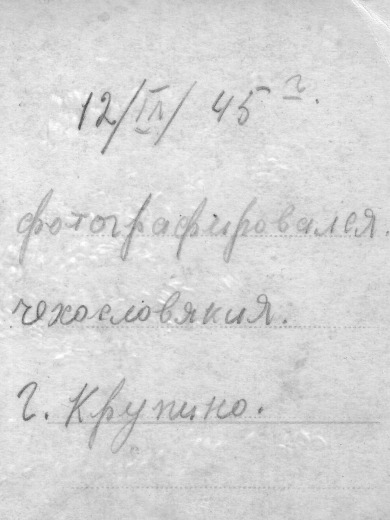 12/IV/ 45 г.
фотографировался.
чехословякия.
г. Крупино.